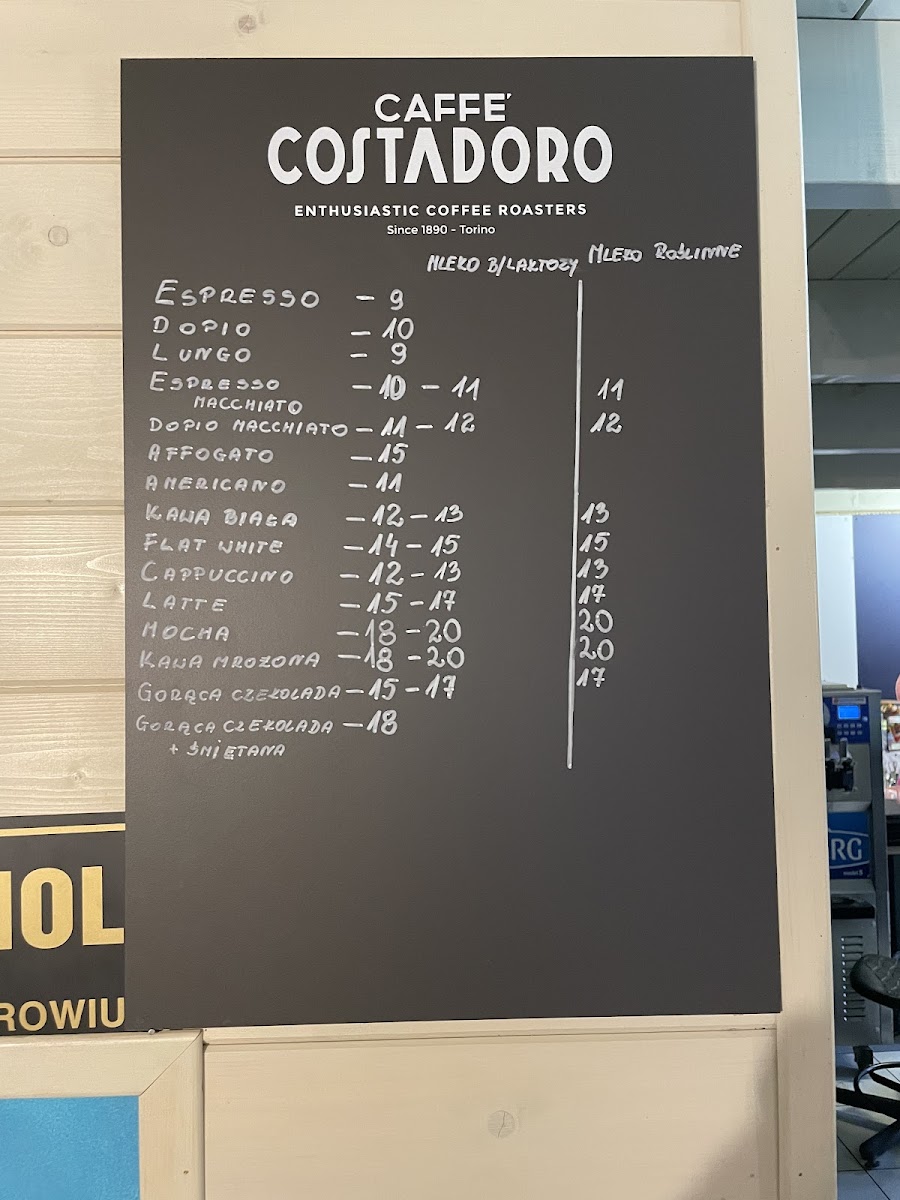 CAFFE'
COSTADORO
ENTHUSIASTIC COFFEE ROASTERS
Since 1890 - Torino
MLEKO B/LAKTOZY MLEKO ROŚLINNE
ESPRESSO - 9
DOPIO - 10
LUNGO - 9
ESPRESSO - 10 - 11 11
MACCHIATO
DOPIO MACCHIATO - 11 - 12 12
AFFOGATO - 15
AMERICANO - 11
KAWA BIAŁA - 12 - 13 13
FLAT WHITE - 14 - 15 15
CAPPUCCINO - 12 - 13 13
LATTE - 15 - 17 17
MOCHA - 18 - 20 20
KAWA MROŻONA - 18 - 20 20
GORĄCA CZEKOLADA - 15 - 17 17
GORĄCA CZEKOLADA - 18
+ ŚMIETANA
IOL
ROWIU
RG